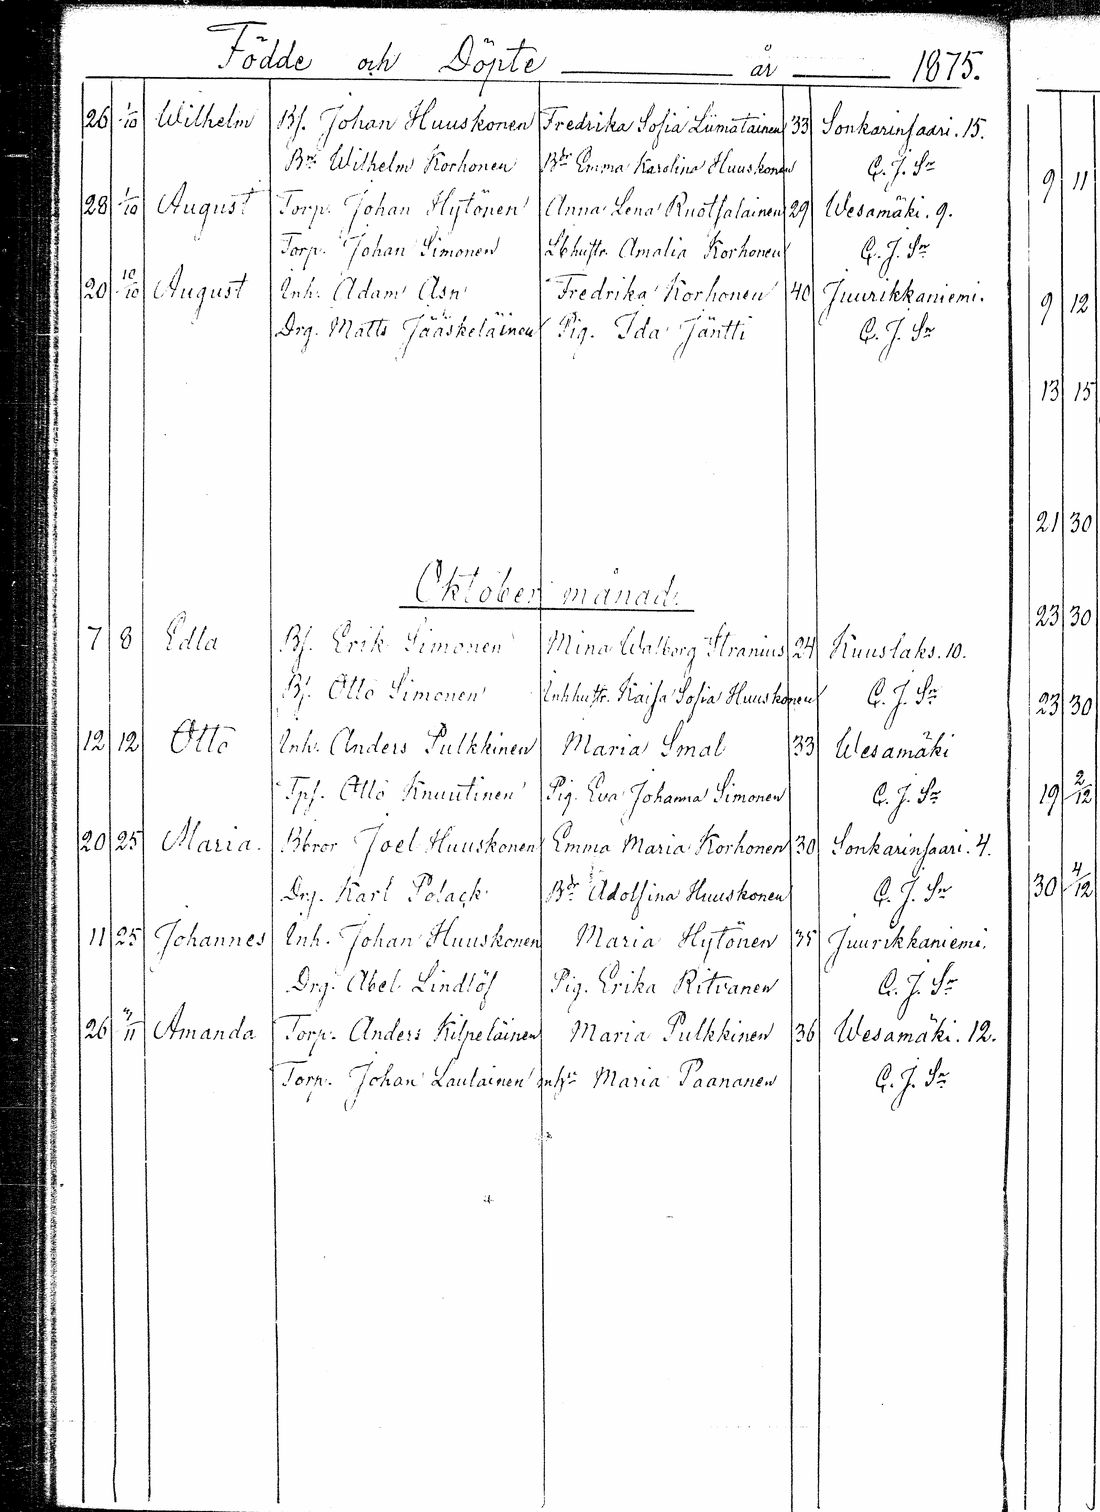 Födde och Döpte år 1875.
26 1/10 Wilhelm Bf. Johan Huuskonen Fredrika Sofia Liimatainen 33 Sonkarinsaari. 15.
Bn. Wilhelm Korhonen Bdr Emma Karolina Huuskonen C. J. Sn
28 1/10 August Torp. Johan Hytönen Anna Lena Ruotsalainen 29 Wesamäki. 9.
Torp. Johan Simonen Amalia Korhonen C. J. Sn
20 10/10 August Inh. Adam Asn Fredrika Korhonen 40 Juurikkaniemi.
Drg. Matts Jääskeläinen Pig. Ida Jäntti C. J. Sn
Oktober månad.
7 8 Edla Bf. Erik Simonen Mina Walborg Stranius 24 Kuuslaks. 10.
Bf. Otto Simonen Inhhustr. Kaisa Sofia Huuskonen C. J. Sn
12 12 Otto Inh. Anders Pulkkinen Maria Smal 33 Wesamäki
Tpf. Otto Knuutinen Pig. Eva Johanna Simonen C. J. Sn
20 25 Maria. Bbror Joel Huuskonen Emma Maria Korhonen 30 Sonkarinsaari. 4.
Drg. Karl Polack Bdr Adolfina Huuskonen C. J. Sn
11 25 Johannes Inh. Johan Huuskonen Maria Hytönen 35 Juurikkaniemi.
Drg. Abel Lindlöf Pig. Erika Ritvanen C. J. Sn
26 Amanda Torp. Anders Kilpeläinen Maria Pulkkinen 36 Wesamäki. 12.
Torp. Johan Laulainen Maria Paananen C. J. Sn
9 11
9 12
13 15
21 30
23 30
23 30
19 2/12
30 4/12